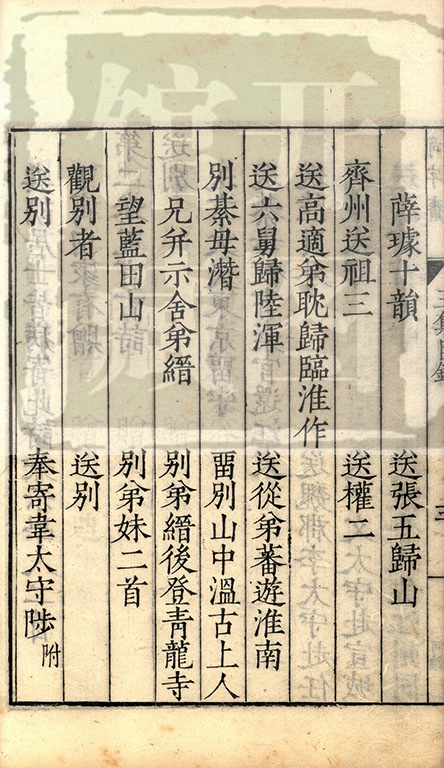 薛璩十韻　送張五歸山
齊州送祖三　送權二
送高適弟耽歸臨淮作
送六舅歸陸渾　送從弟蕃遊淮南
別綦毋潛　留別山中溫古上人
兄并示舍弟縉　別弟縉後登青龍寺
望藍田山　別弟妹二首
觀別者　送別
送別　奉寄韋太守陟附